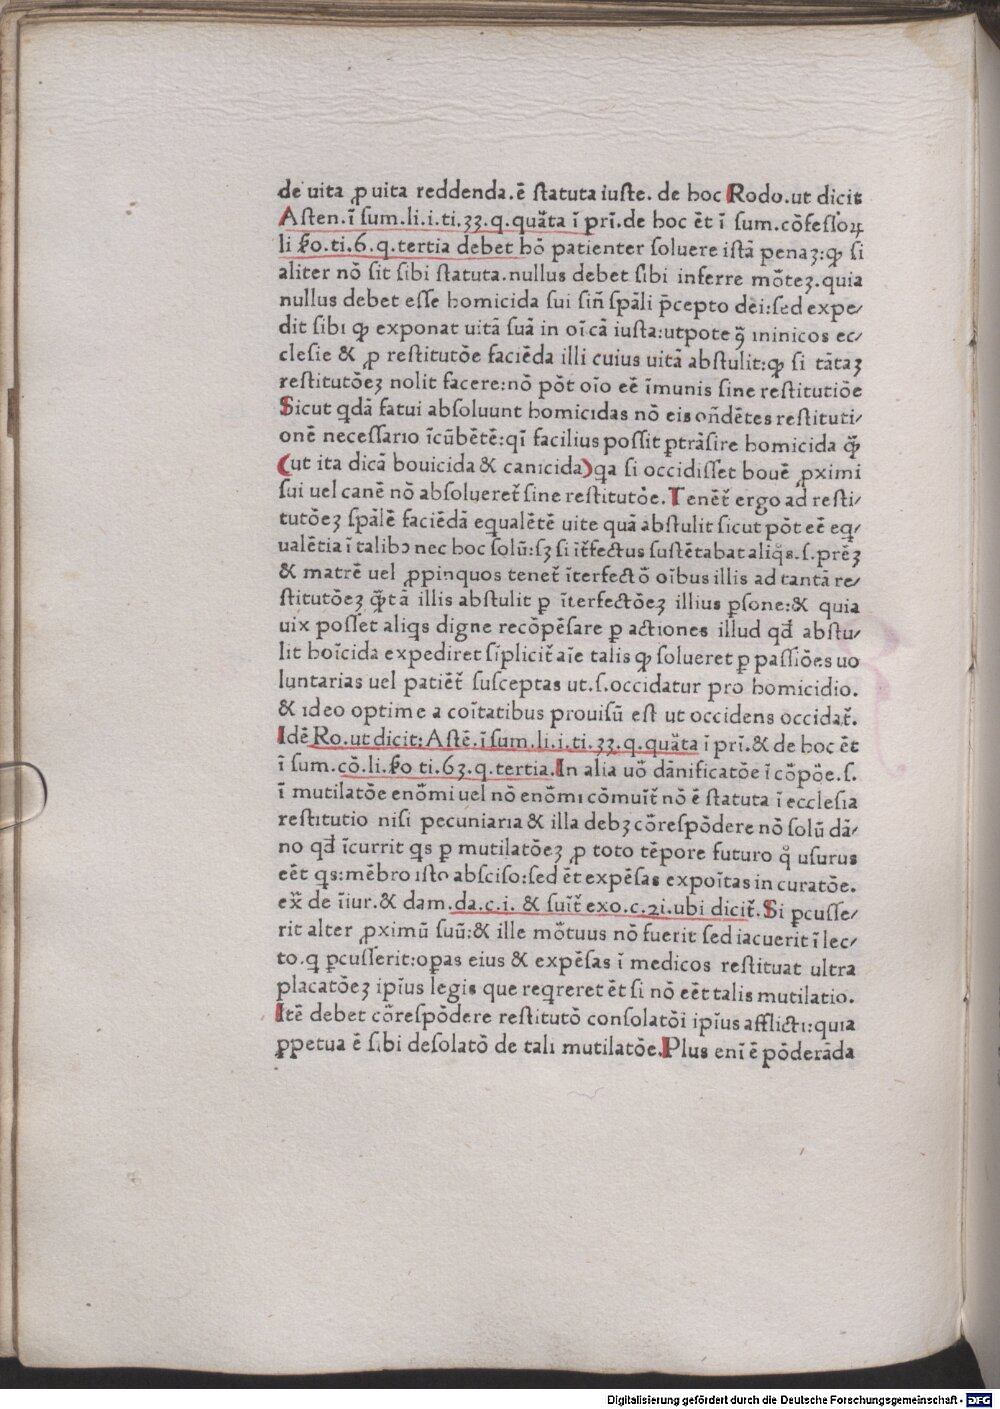 de uita ꝓ uita reddenda.ē ſtatuta iuſte. de hoc Rodo.ut dicit
Aſten.ī ſum.li.i.ti.33.q.quāta ī pri̅.de hoc ēt ī ſum.cōfeſſoꝝ
li ꝑo.ti.6.q.tertia debet hō patienter ſoluere iſtā penaꝫ:ꝙ ſi
aliter nō ſit ſibi ſtatuta.nullus debet ſibi inferre mōteꝫ.quia
nullus debet eſſe homicida ſui ſin̄ ſpāli p̄cepto dei:ſed expe/
dit ſibi ꝙ exponat uitā ſuā in oi̅ cā iuſta:utpote ꝯ̄ ininicos ec/
cleſie & ꝓ reſtitutōe faciēda illi cuius uitā abſtulit:ꝙ ſi tātaꝫ
reſtitutōeꝫ nolit facere:nō pōt oi̅o eē īmunis ſine reſtitutiōe
Sicut qdā fatui abſoluunt homicidas nō eis on̄dētes reſtituti/
onē neceſſario īcūbētē:qi̅ facilius poſſit ꝑtrāſire homicida ꝙ̄
(ut ita dicā bouicida & canicida)qa ſi occidiſſet bouē ꝓximi
ſui uel canē nō abſolueret̄ ſine reſtitutōe. Tenet̄ ergo ad reſti/
tutōeꝫ ſpālē faciēdā equalētē uite quā abſtulit ſicut pōt eē eq/
ualētia ī talibꝰ nec hoc ſolū:ſꝫ ſi it̄fectus ſuſtētabat aliq̄s.ſ.prēꝫ
& matrē uel ꝓpinquos tenet̄ īterfectō oi̅bus illis ad tantā re/
ſtitutōeꝫ ꝙ̄tā illis abſtulit ꝑ īterfectōeꝫ illius ꝑſone:& quia
uix poſſet aliqs digne recōpēſare ꝑ actiones illud qd̄ abſtu/
lit hoi̅cida expediret ſi̅plicit̄ ai̅e talis ꝙ ſolueret ꝑ paſſiōes uo
luntarias uel patiēt̄ ſuſceptas ut.ſ.occidatur pro homicidio.
& ideo optime a coi̅tatibus prouiſū eſt ut occidens occidat̄.
Idē Ro.ut dicit:Aſtē.ī ſum.li.i.ti.33.q.quāta ī pri̅.& de hoc ēt
ī ſum.cō.li.ꝑo ti.63.q.tertia.In alia uō dānificatōe ī cōꝑōe.ſ.
ī mutilatōe enōmi uel nō enōmi cōmuit̄ nō ē ſtatuta ī eccleſia
reſtitutio niſi pecuniaria & illa debꝫ cōreſpōdere nō ſolū dā/
no qd̄ īcurrit qs ꝑ mutilatōeꝫ ꝓ toto tēpore futuro q̊ uſurus
eēt qs:mēbro iſto abſciſo:ſed ēt expēſas expoi̅tas in curatōe.
ex̄ de īiur.& dam.da.c.i. & ſuit̄ exo.c.21.ubi dicit̄.Si ꝑcuſſe/
rit alter ꝓximū ſuū:& ille mōtuus nō fuerit ſed iacuerit ī lec/
to.q ꝑcuſſerit:oꝑas eius & expēſas ī medicos reſtituat ultra
placatōeꝫ ipi̅us legis que reqreret ēt ſi nō eēt talis mutilatio.
Itē debet cōreſpōdere reſtitutō conſolatōi ipi̅us afflicti:quia
ꝑpetua ē ſibi deſolatō de tali mutilatōe.Plus eni̅ ē pōderāda
Digitalisierung gefördert durch die Deutsche Forschungsgemeinschaft - DFG